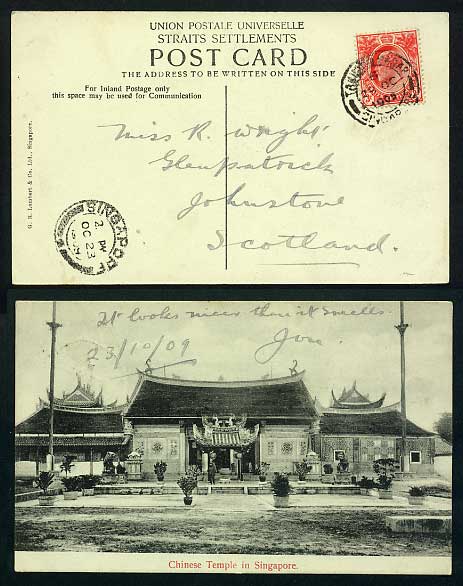 UNION POSTALE UNIVERSELLE
STRAITS SETTLEMENTS
POST CARD
THE ADDRESS TO BE WRITTEN ON THIS SIDE
For Inland Postage only
this space may be used for Communication
G. R. Lambert & Co. Ltd., Singapore.
Miss R. Wright
Glenpatrick
Johnstone
Scotland.
SINGAPORE
2 PM
OC 23
It looks nicer than it smells.
23/10/09
Chinese Temple in Singapore.